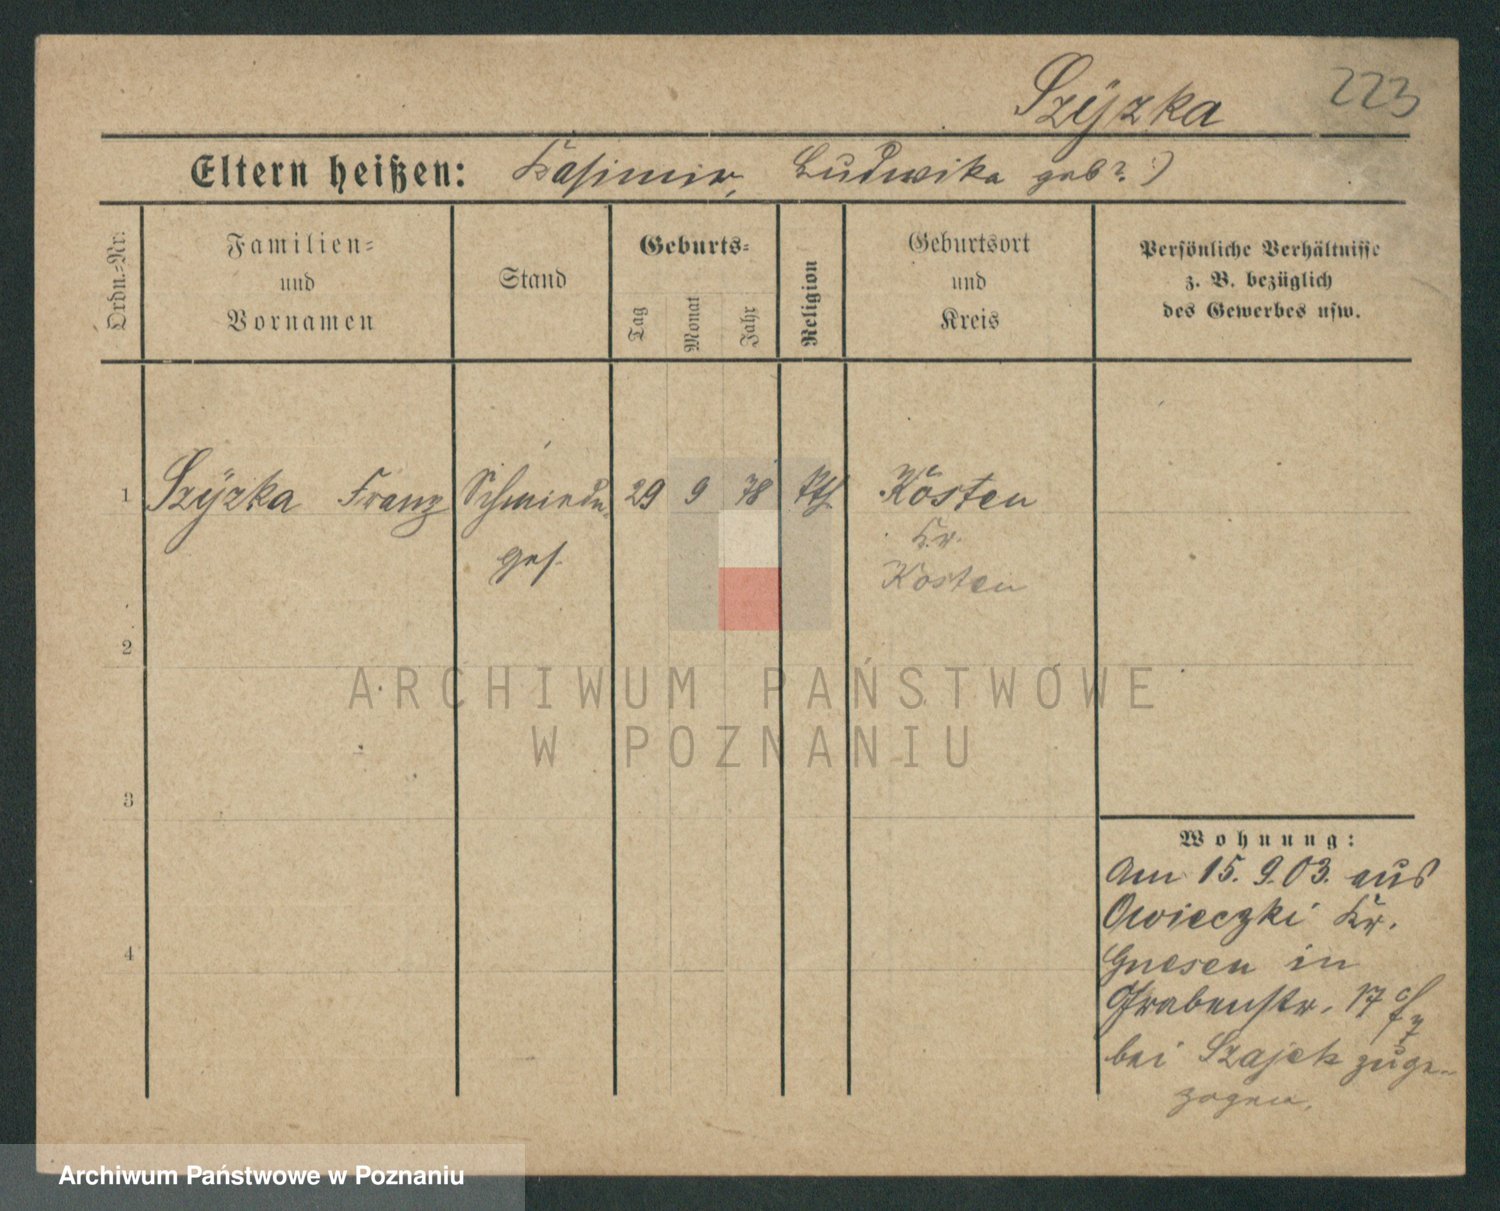 Szÿzka 223
Eltern heißen: Kasimir, Ludwika geb ?)
Ordn.=Nr.
Familien=
und
Vornamen
Stand
Geburts=
Tag
Monat
Jahr
Religion
Geburtsort
und
Kreis
Persönliche Verhältnisse
z. B. bezüglich
des Gewerbes usw.
1 Szÿzka Franz Schmiede 29 9 78 kth. Kosten
ges. Kr.
Kosten
2
ARCHIWUM PAŃSTWOWE
W POZNANIU
3
4
Wohnung:
Am 15. 9. 03. aus
Owieczki Kr.
Gnesen in
Grabenstr. 17
bei Szajek zuge-
zogen.
Archiwum Państwowe w Poznaniu